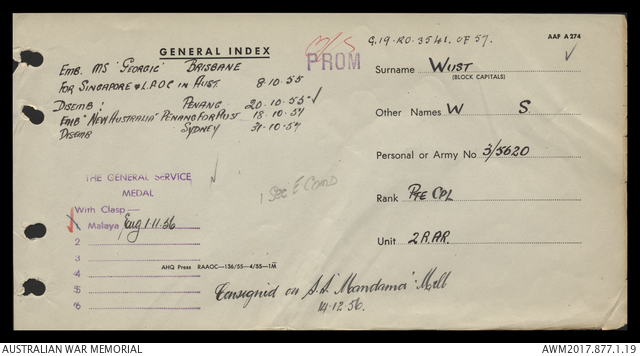 GENERAL INDEX
EMB. MS "GEORGIC" BRISBANE
FOR SINGAPORE & L.P.O.C IN AUST. 8.10.55
DISEMB: PENANG 20.10.55
EMB "NEW AUSTRALIA" PENANG FOR AUST 18.10.57
DISEMB SYDNEY 31.10.57
PROM
G.19.RO.3541. OF 57.
AAF A 274
Surname WUST
(BLOCK CAPITALS)
Other Names W S.
Personal or Army No 3/5620
Rank PTE CPL
Unit 2 R.A.R.
THE GENERAL SERVICE
MEDAL
With Clasp—
1 Malaya Eng 1.11.56
2
3
4
5
6
1 Sec E Comd
AHQ Press RAAOC—136/55—4/55—1M
Consigned on S.S. "Mandama" Melb
14.12.56.
AUSTRALIAN WAR MEMORIAL
AWM2017.877.1.19